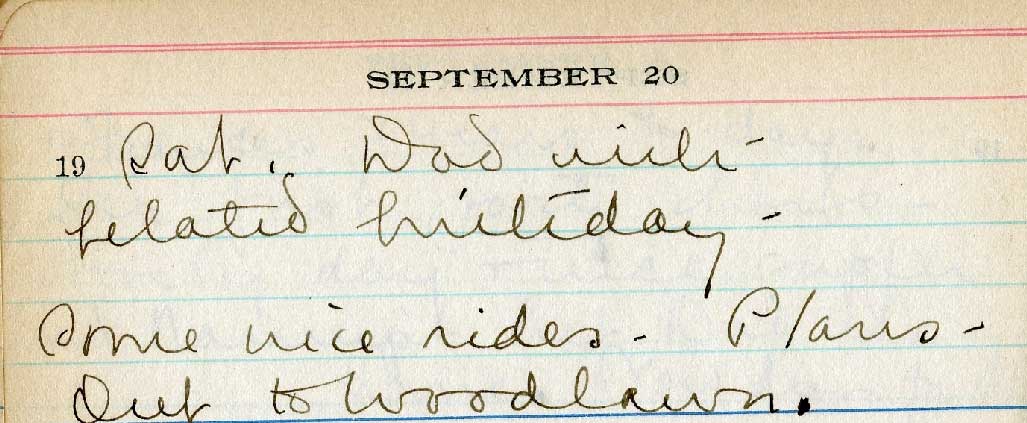 SEPTEMBER 20
19 Sat. Dad with -
belated birthday -
Some nice rides - Plans -
Out to Woodlawn.